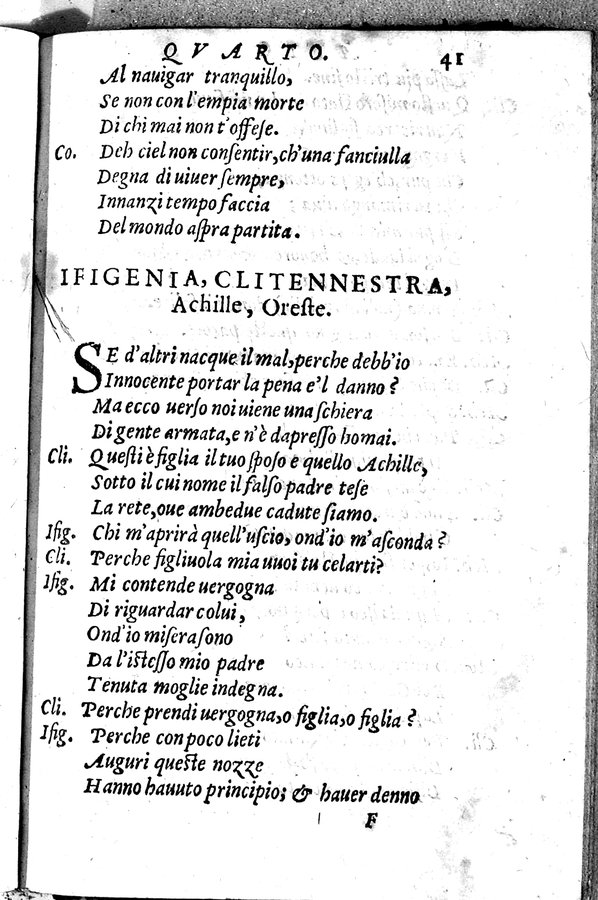 QVARTO. 41
Al nauigar tranquillo,
Se non con l'empia morte
Di chi mai non t'offese.
Co. Deh ciel non consentir, ch'una fanciulla
Degna di uiuer sempre,
Innanzi tempo faccia
Del mondo aſpra partita.
IFIGENIA, CLITENNESTRA,
Achille, Oreſte.
SE d'altri nacque il mal, perche debb'io
Innocente portar la pena e'l danno?
Ma ecco uerſo noi uiene una ſchiera
Di gente armata, e n'è dapreſſo homai.
Cli. Queſti è figlia il tuo ſpoſo e quello Achille,
Sotto il cui nome il falſo padre teſe
La rete, oue ambedue cadute ſiamo.
Ifig. Chi m'aprirà quell'uſcio, ond'io m'aſconda?
Cli. Perche figliuola mia uuoi tu celarti?
Ifig. Mi contende uergogna
Di riguardar colui,
Ond'io miſera ſono
Da l'iſteſſo mio padre
Tenuta moglie indegna.
Cli. Perche prendi uergogna, o figlia, o figlia?
Ifig. Perche con poco lieti
Auguri queſte nozze
Hanno hauuto principio; & hauer denno
F